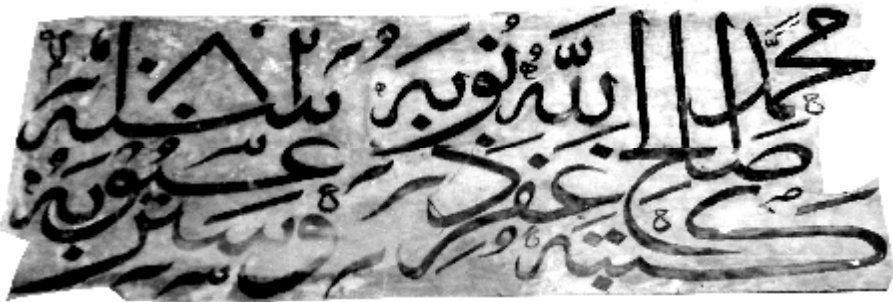 كتبه محمد صالح غفر الله ذنوبه وستر عيوبه سنه ١٠٨٢